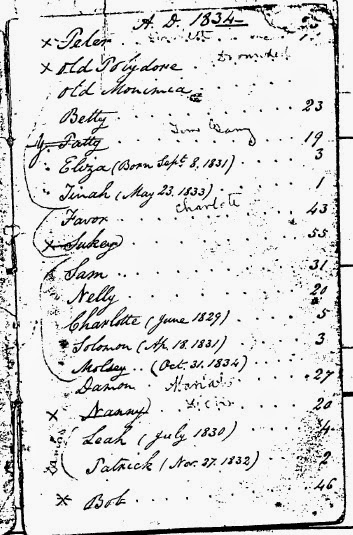 A. D. 1834
x Peter
x Old Polydore Drowned
Old Monimia
Betty 23
Patty 19
Eliza (Born Sept. 8, 1831) 3
Tinah (May 23. 1833) 1
Charlotte
Favor 43
x Sukey 55
Sam 31
Nelly 20
Charlotte (June 1829) 5
Solomon (Ap. 18. 1831) 3
Molsey (Oct. 31. 1834)
Damon Maria 27
x Nanny 20
Leah (July 1830) 4
Patrick (Nov. 27. 1832) 2
x Bob 46